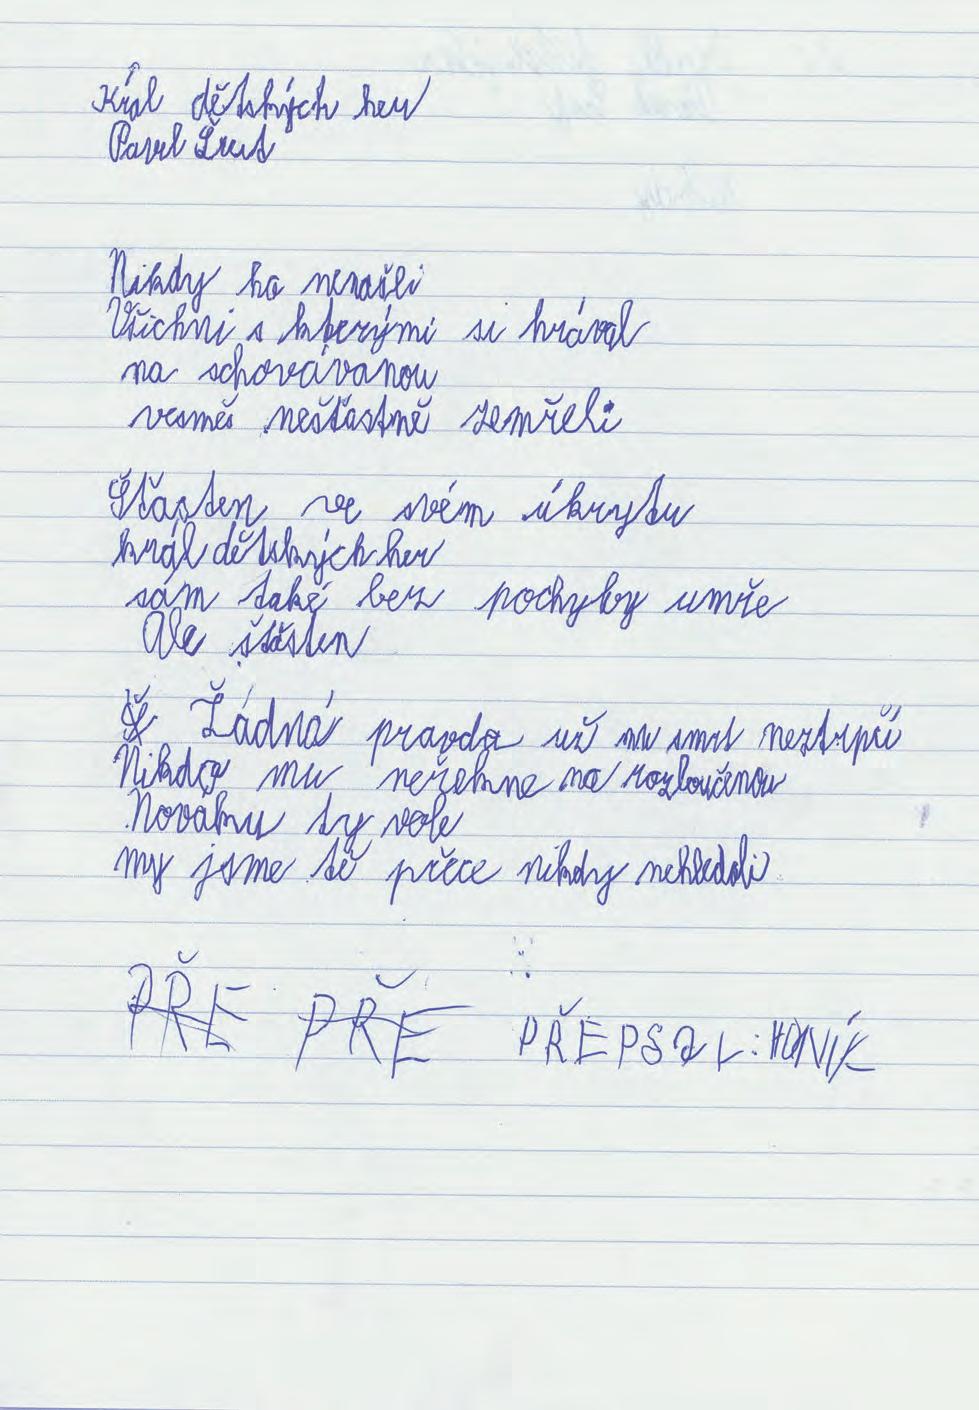 Král dětských her
Pavel Šrut
Nikdy ho nenašli
Všichni s kterými si hrával
na schovávanou
vesměs nešťastně zemřeli
Šťasten ve svém úkrytu
král dětských her
sám také bez pochyby umře
Ale šťasten
Žádná pravda už mu smrt neztrpčí
Nikdo mu neřekne na rozloučenou
Nováku ty vole
my jsme tě přece nikdy nehledali
PŘE PŘE PŘEPSAL: HONÍK